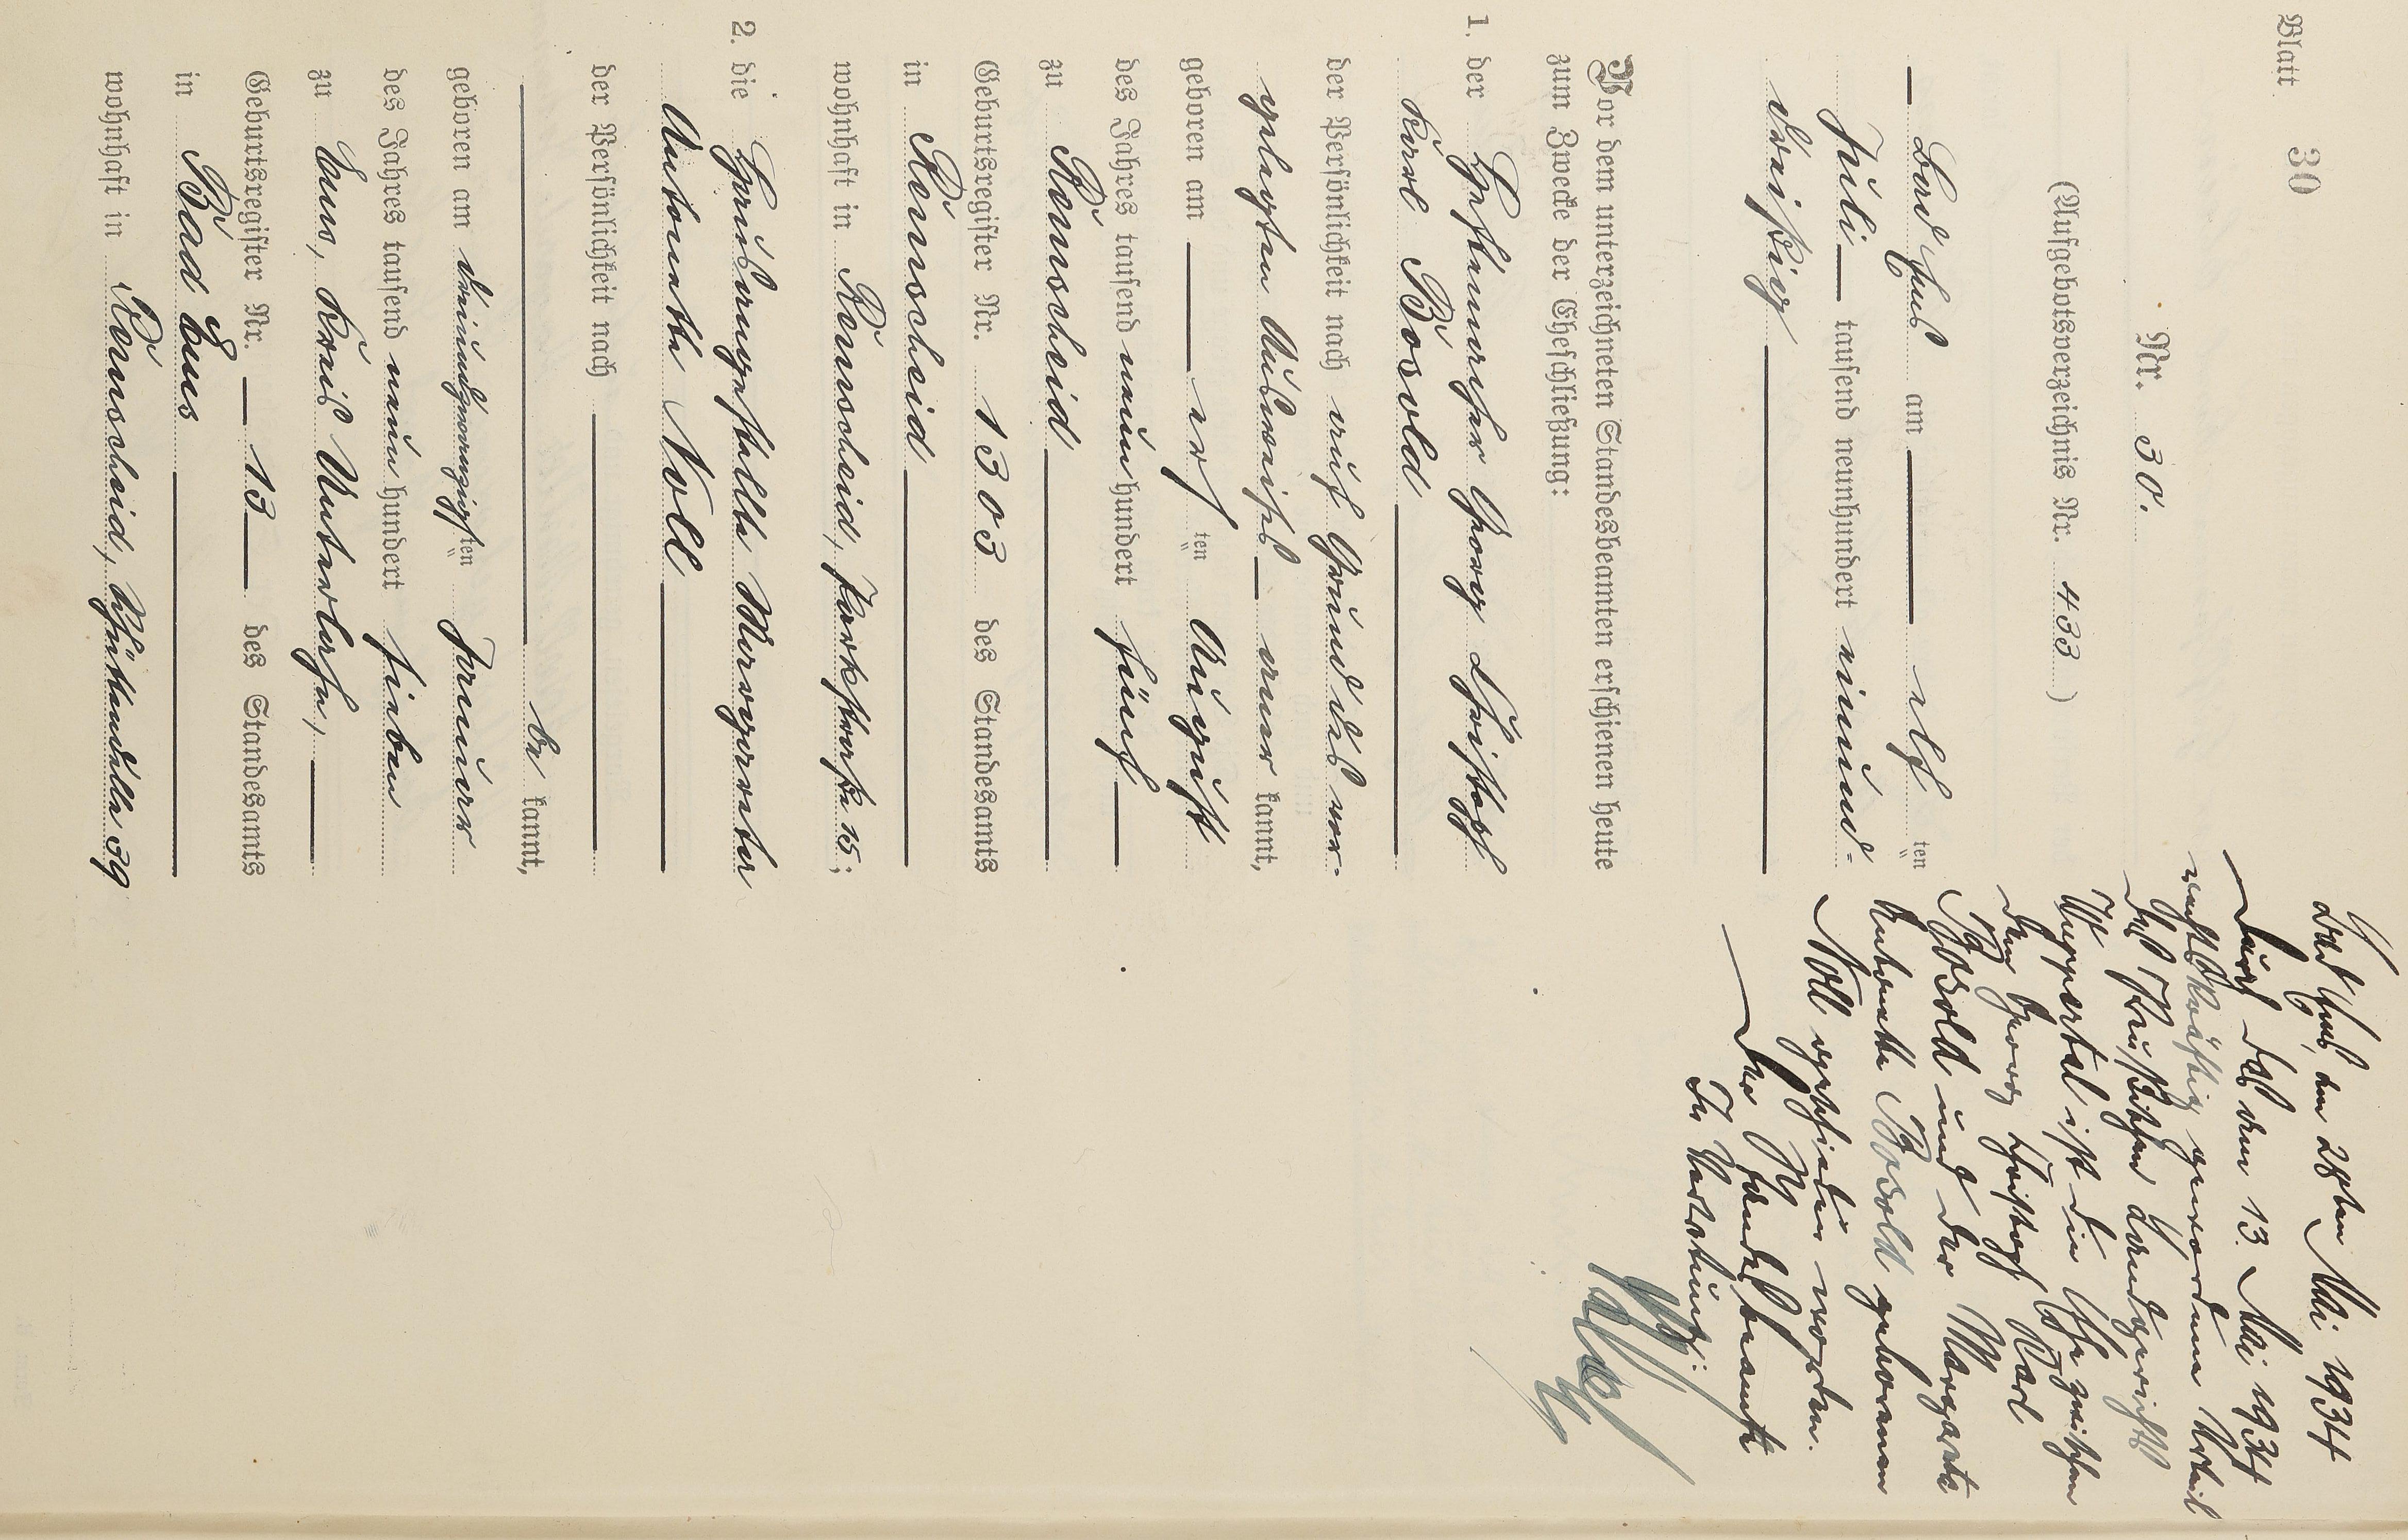 Blatt 30
Nr. 30.
(Aufgebotsverzeichnis Nr. 433)
Bad Ems am elf ten
Juli tausend neunhundert einund-
dreißig
Vor dem unterzeichneten Standesbeamten erschienen heute
zum Zwecke der Eheschließung:
1. der Georg Christoph
Karl Bosold
der Persönlichkeit nach auf Grund des vor-
gelegten Ausweises aner kannt,
geboren am ten August
des Jahres tausend neun hundert fünf
zu Remscheid
Geburtsregister Nr. 1303 des Standesamts
in Remscheid
wohnhaft in Remscheid, Parkstraße 15;
2. die Margarete
Antonette Noll
der Persönlichkeit nach
be kannt,
geboren am dreiundzwanzigsten Januar
des Jahres tausend neun hundert sieben
zu Ems, Kreis Unterlahn,
Geburtsregister Nr. 13 des Standesamts
in Bad Ems
wohnhaft in Remscheid, 39
Bad Ems, den 28ten Mai 1934
Durch das am 13. Mai 1934
rechtskräftig gewordene Urteil
des Preußischen Landgerichts
Wuppertal ist die Ehe zwischen
dem Georg Christoph Karl
Bosold und der Margarete
Antonette Bosold geborenen
Noll geschieden worden.
Der Standesbeamte
In Vertretung: